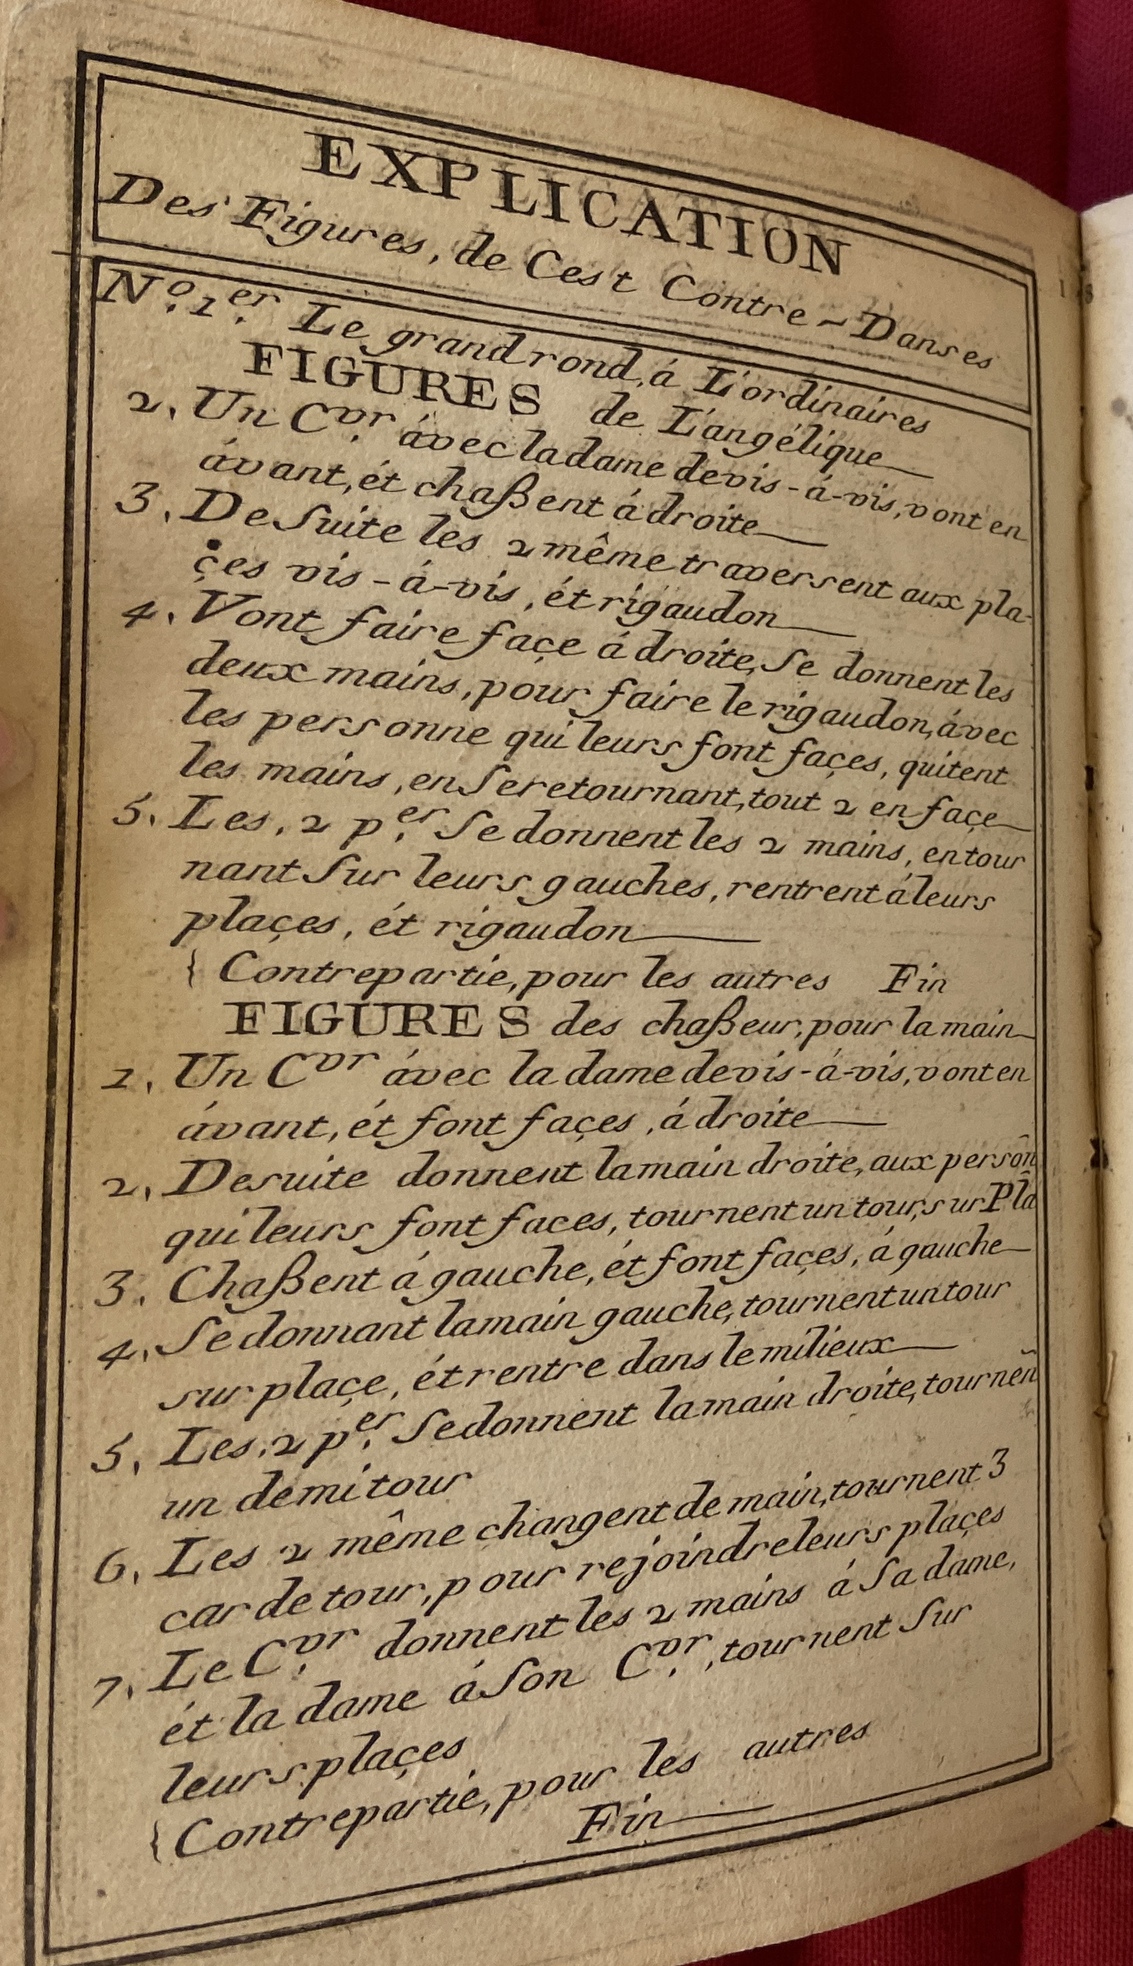 EXPLICATION
Des Figures, de Cest Contre-Danses
N.º 1.er Le grand rond, á L'ordinaires
FIGURES de L'angélique
2. Un C.vr ávec la dame de vis-á-vis, vont en
ávant, ét chaßent á droite
3. De Suite les 2 même traversent aux pla-
çes vis-á-vis, ét rigaudon
4. Vont faire façe á droite, Se donnent les
deux mains, pour faire le rigaudon, ávec
les personne qui leurs font façes, quitent
les mains, en Se retournant, tout 2 en façe
5. Les. 2 p.er Se donnent les 2 mains, en tour
nant Sur leurs gauches, rentrent á leurs
plaçes, ét rigaudon
{ Contrepartie, pour les autres Fin
FIGURES des chaßeur, pour la main
1. Un Cvr ávec la dame de vis-á-vis, vont en
ávant, ét font façes, á droite
2. De suite donnent la main droite, aux persôn
qui leurs font faces, tournent un tour, sur Pla
3. Chaßent á gauche, ét font façes, á gauche
4. Se donnant la main gauche, tournent un tour
sur plaçe, ét rentre dans le milieux
5. Les. 2 p.er Se donnent la main droite, tourneñ
un demi tour
6. Les 2 même changent de main, tournent 3
car de tour, pour rejoindre leurs plaçes
7. Le C.vr donnent les 2 mains á Sa dame,
ét la dame á Son C.vr, tournent Sur
leurs plaçes
{ Contrepartie, pour les autres
Fin